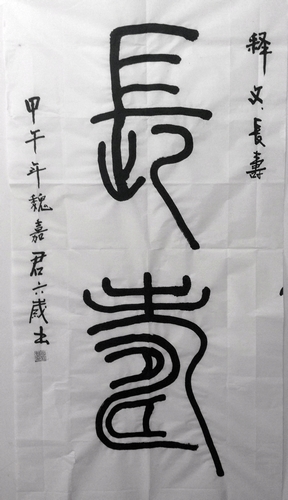 释文:長壽
長壽
甲午年魏嘉君六歲书